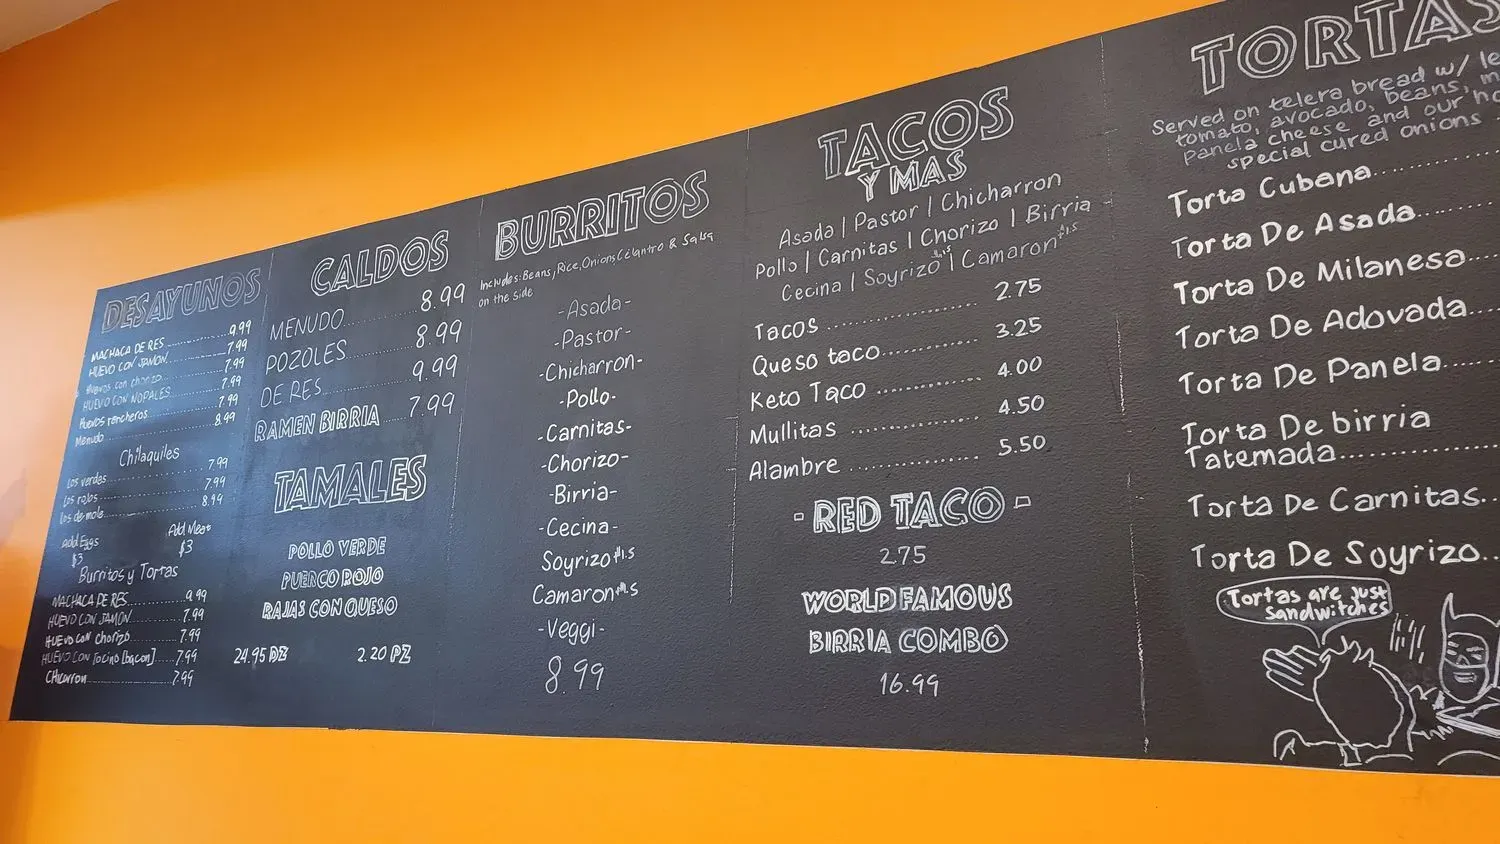 DESAYUNOS
MACHACA DE RES 9.99
HUEVO CON JAMON 7.99
Huevos con chorizo 7.99
HUEVO CON NOPALES 7.99
Huevos rancheros 7.99
Menudo 8.99
Chilaquiles
Los verdes 7.99
Los rojos 7.99
Los de mole 8.99
Add Eggs Add Meat
$3 $3
Burritos y Tortas
MACHACA DE RES 9.99
HUEVO CON JAMON 7.99
HUEVO CON chorizo 7.99
HUEVO CON Tocino [bacon] 7.99
CHicarron 7.99
CALDOS
MENUDO 8.99
POZOLES 8.99
DE RES 9.99
RAMEN BIRRIA 7.99
TAMALES
POLLO VERDE
PUERCO ROJO
RAJAS CON QUESO
24.95 DZ 2.20 PZ
BURRITOS
Includes: Beans, Rice, Onions Cilantro & Salsa
on the side
-Asada-
-Pastor-
-Chicharron-
-Pollo-
-Carnitas-
-Chorizo-
-Birria-
-Cecina-
Soyrizo +1.5
Camaron +1.5
-Veggi-
8.99
TACOS
Y MAS
Asada | Pastor | Chicharron
Pollo | Carnitas | Chorizo | Birria
Cecina | Soyrizo +1.5 | Camaron +1.5
Tacos 2.75
Queso taco 3.25
Keto Taco 4.00
Mullitas 4.50
Alambre 5.50
- RED TACO -
2.75
WORLD FAMOUS
BIRRIA COMBO
16.99
TORTAS
Served on telera bread w/
tomato, avocado, beans,
panela cheese and our
special cured onions
Torta Cubana
Torta De Asada
Torta De Milanesa
Torta De Adovada
Torta De Panela
Torta De birria
Tatemada
Torta De Carnitas
Torta De Soyrizo
Tortas are just
sandwitches